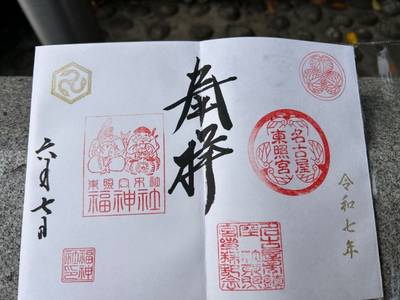 令和七年
名古屋
東照宮
奉拝
東照宮末社
福神社
六月七日
福神
社印